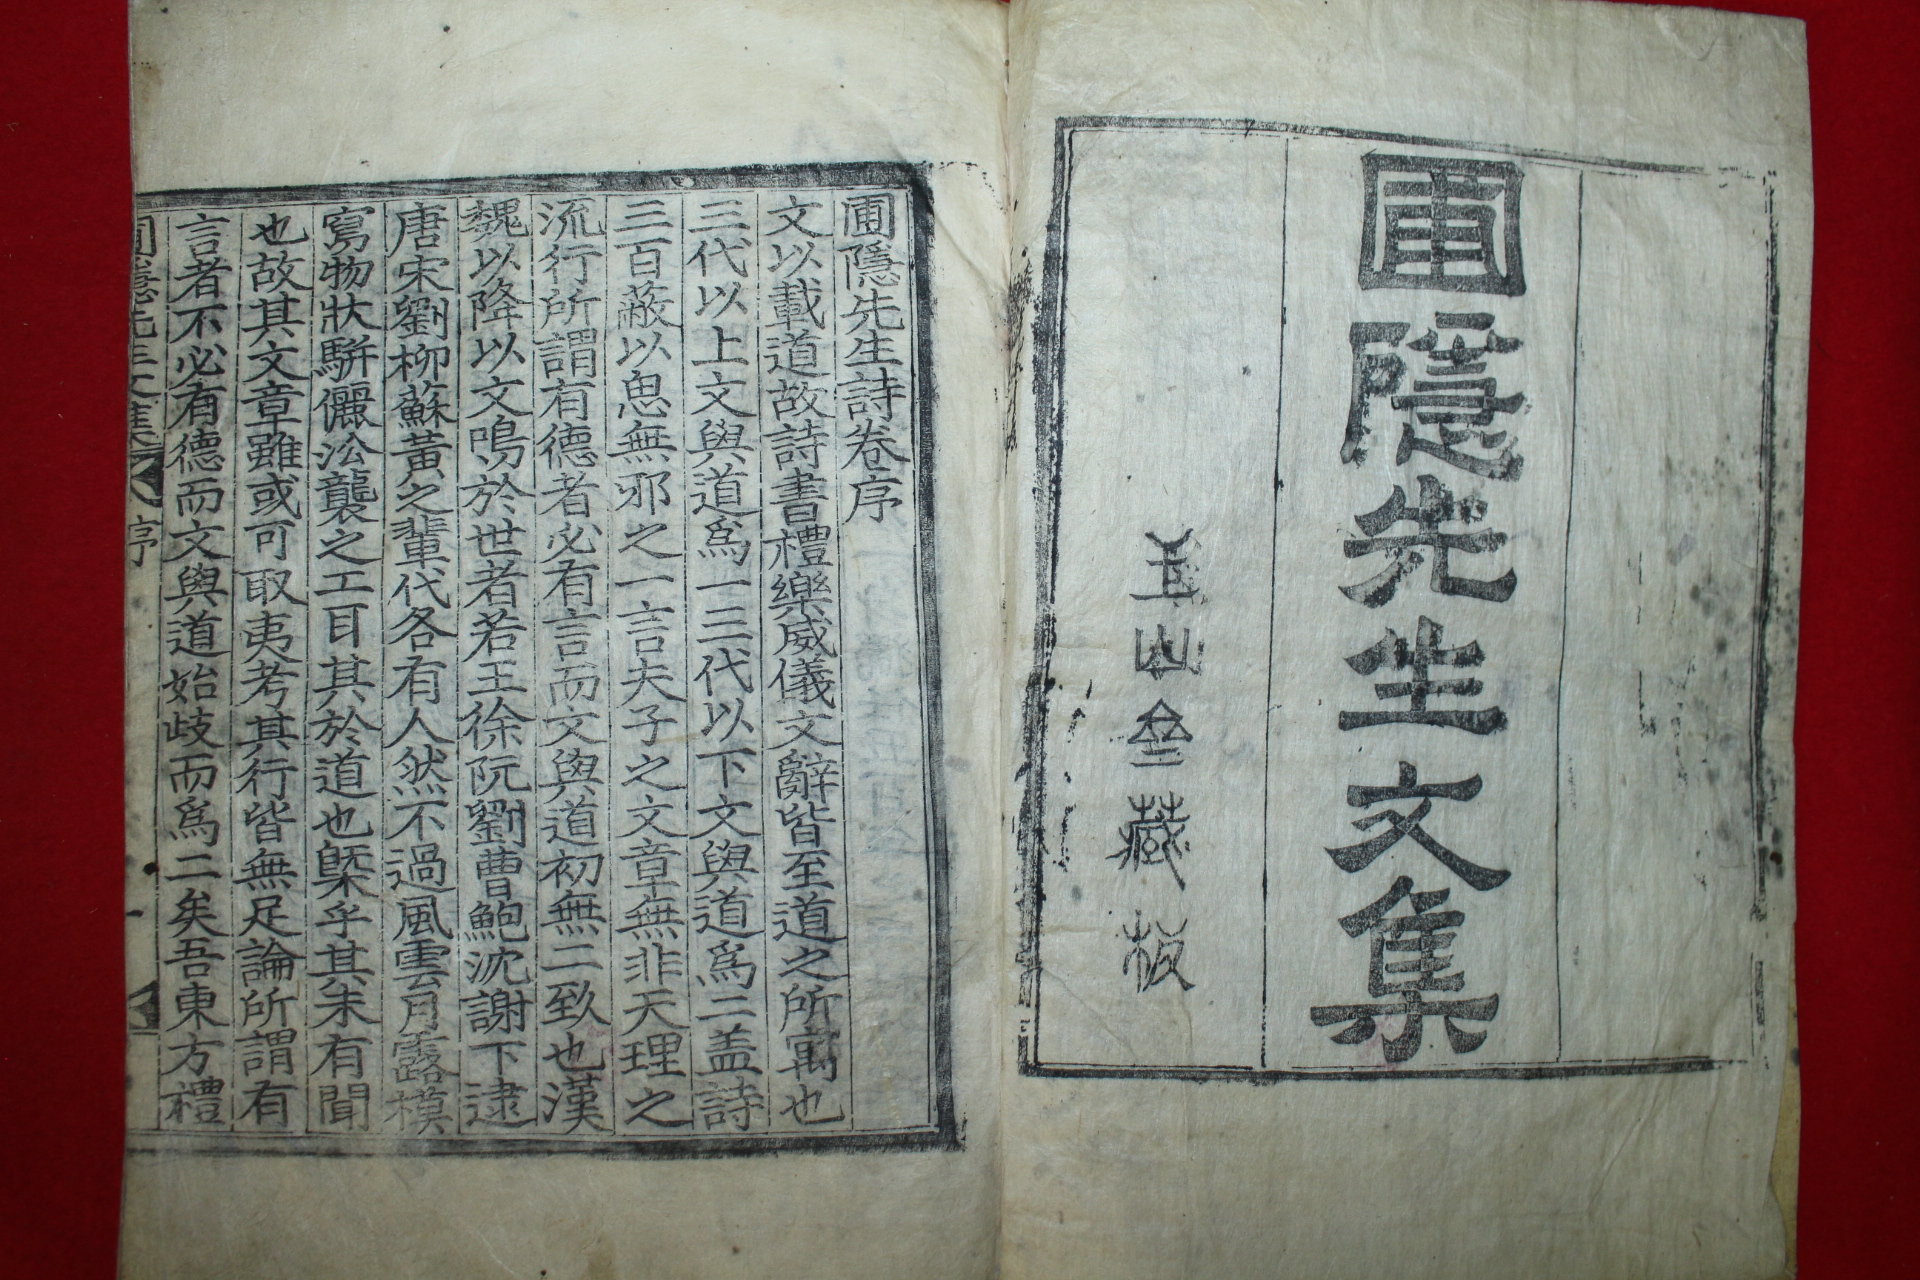 圃隱先生文集
玉山仝藏板
圃隱先生詩卷序
文以載道故詩書禮樂威儀文辭皆至道之所寓也
三代以上文與道爲一三代以下文與道爲二盖詩
三百蔽以思無邪之一言夫子之文章無非天理之
流行所謂有德者必有言而文與道初無二致也漢
魏以降以文鳴於世者若王徐阮劉曹鮑沈謝下逮
唐宋劉柳蘇黃之輩代各有人然不過風雲月露模
寫物狀騈儷㳂襲之工耳其於道也槩乎其未有聞
也故其文章雖或可取夷考其行皆無足論所謂有
言者不必有德而文與道始歧而爲二矣吾東方禮
圃隱先生文集 序